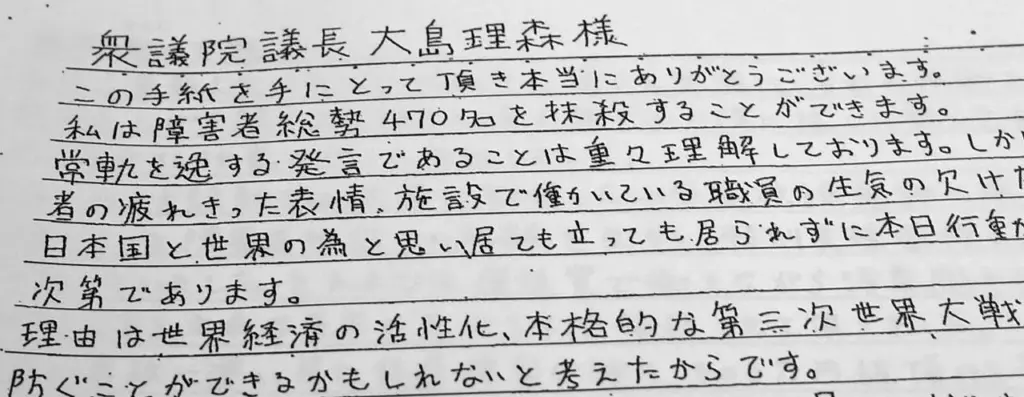 衆議院議長大島理森様
この手紙を手にとって頂き本当にありがとうございます。
私は障害者総勢470名を抹殺することができます。
常軌を逸する発言であることは重々理解しております。しか
者の疲れきった表情、施設で働かいている職員の生気の欠けた
日本国と世界の為と思い居ても立っても居られずに本日行動
次第であります。
理由は世界経済の活性化、本格的な第三次世界大戦
防ぐことができるかもしれないと考えたからです。